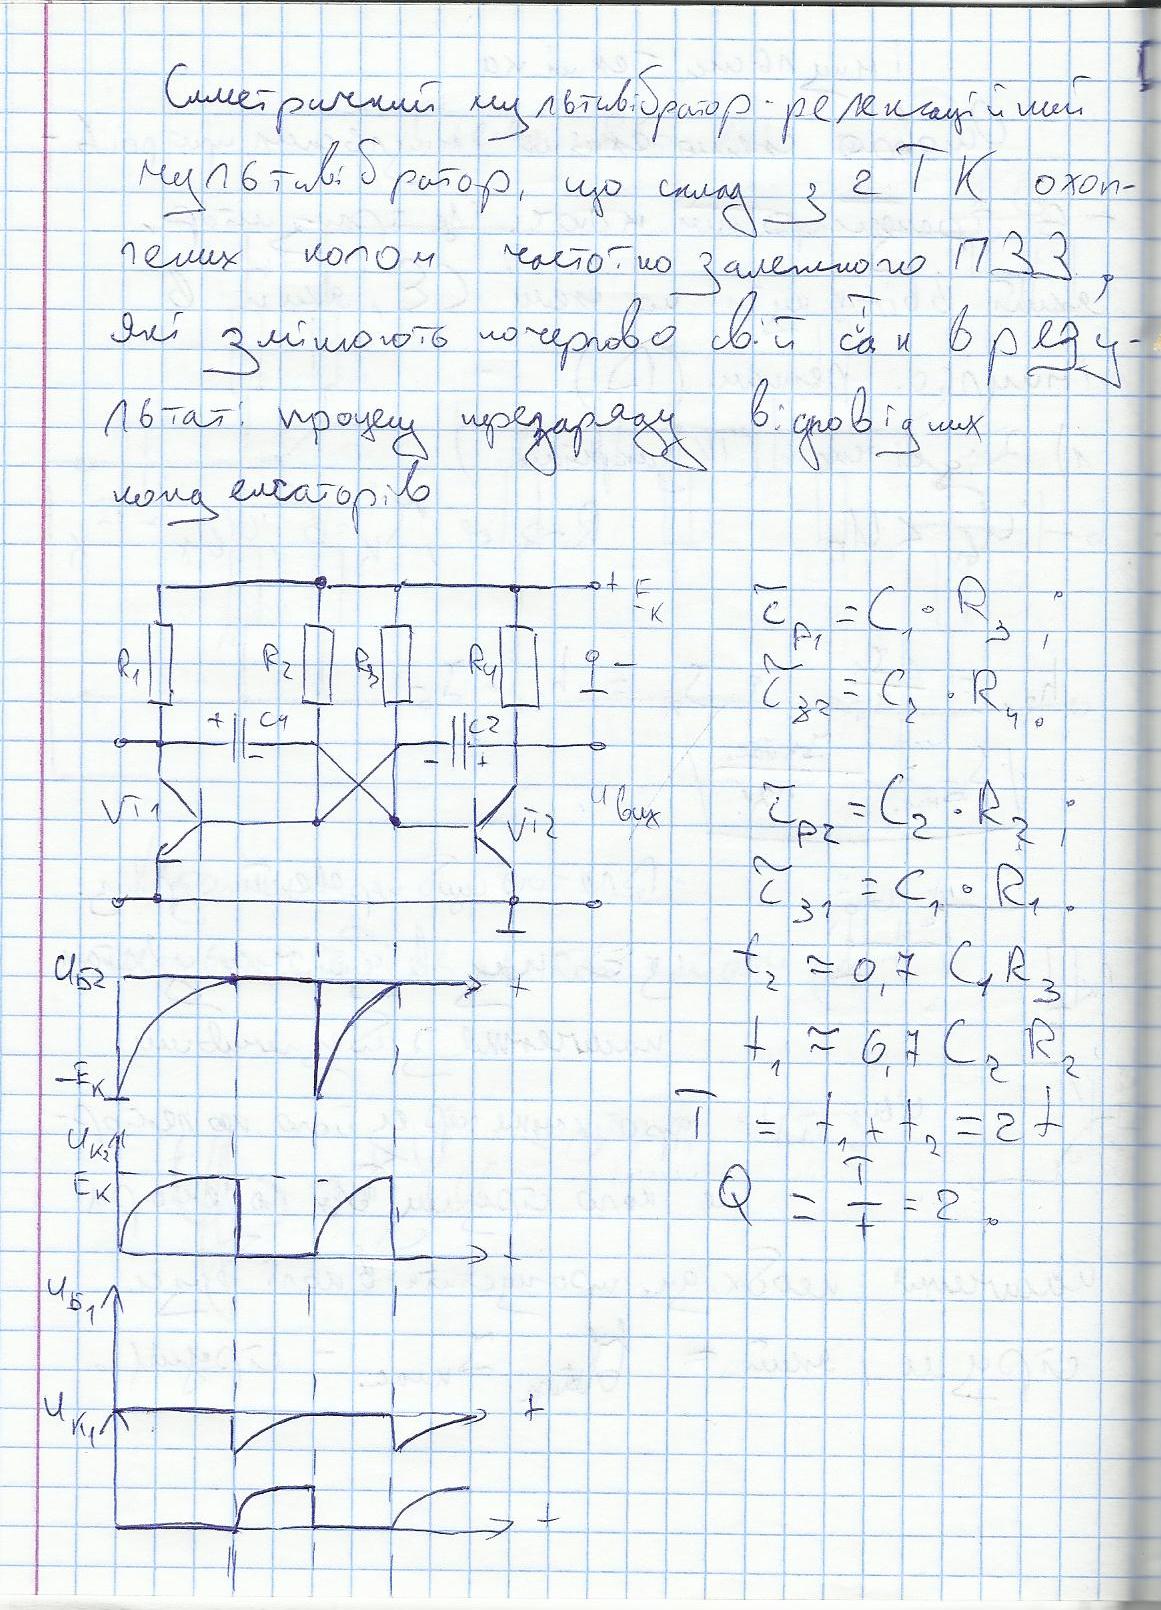 Симетричний мультивібратор - релаксаційний
мультивібратор, що склад з 2 ТК охоп-
лених колом частотно залежного ПЗЗ,
які змінюють почергово свій стан в резу-
льтаті процесу перезаряду відповідних
конденсаторів
+ Eк
R1 R2 R3 R4 -
+ C1 - - C2 +
VT1 VT2 Uвих
τр1 = C1 · R3 ;
τз2 = C2 · R4 .
τр2 = C2 · R2 ;
τз1 = C1 · R1 .
t2 ≈ 0,7 C1R3
t1 ≈ 0,7 C2 R2
T = t1 + t2 = 2t
Q = T/t = 2 .
UБ2 t
-Eк
Uк2
Eк t
UБ1
Uк1 t
t